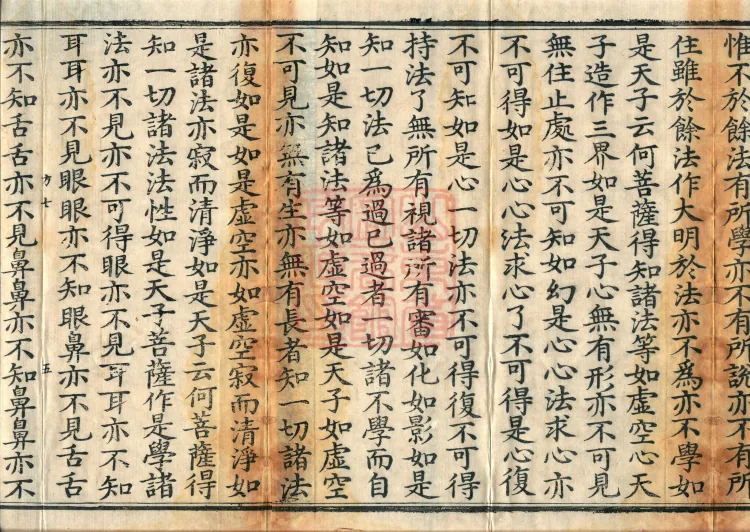 惟不於餘法有所學亦不有所說亦不有所
住雖於餘法作大明於法亦不爲亦不學如
是天子云何菩薩得知諸法等如虛空心天
子造作三界如是天子心無有形亦不可見
無住止處亦不可知如幻是心心法求心亦
不可得如是心心法求心了不可得是心復
不可知如是心一切法亦不可得復不可得
持法了無所有視諸所有審如化如影如是
知一切法已爲過已過者一切諸不學而自
知如是知諸法等如虛空如是天子如虛空
不可見亦無有生亦無有長者知一切諸法
亦復如是如是虛空亦如虛空寂而清淨如
是諸法亦寂而清淨如是天子云何菩薩得
知一切諸法法性如是天子菩薩作是學諸
法亦不見亦不可得眼亦不見耳耳亦不知
耳耳亦不見眼眼亦不知眼鼻亦不見舌舌
方七 五
亦不知舌舌亦不見鼻鼻亦不知鼻鼻亦不